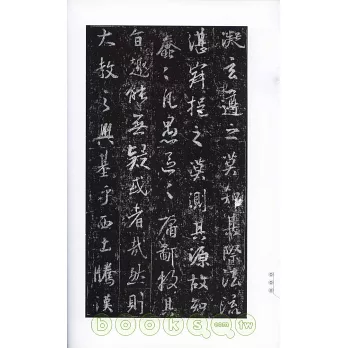 凝玄遵之莫知其際法流
湛寂挹之莫測其源故知
蠢〻凡愚區〻庸鄙投其
旨趣能無疑或者哉然則
大教之興基乎西土騰漢
books.com.tw